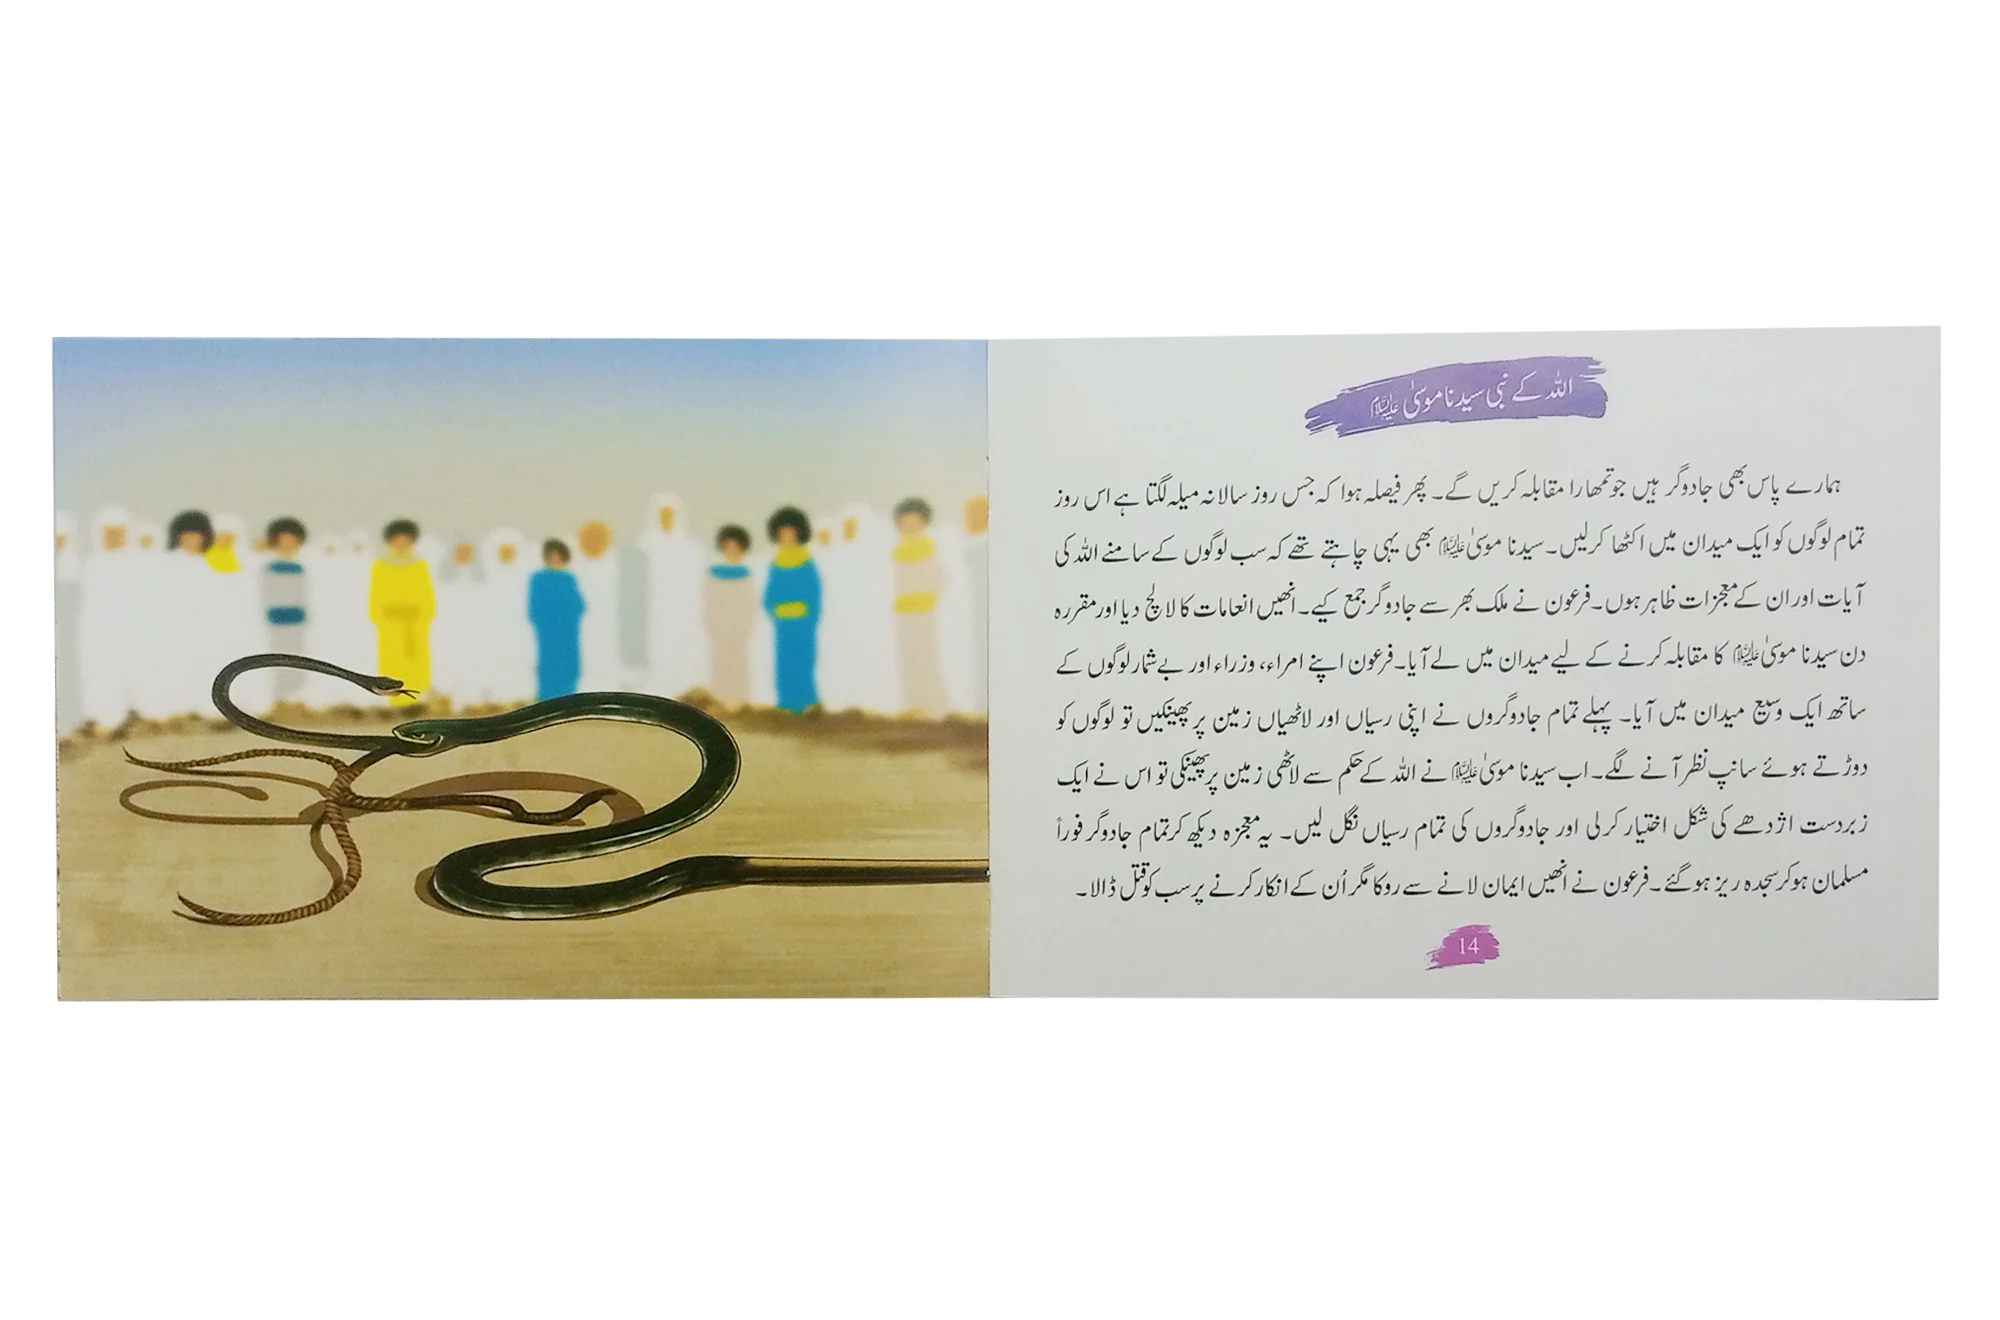 اللہ کے نبی سیدنا موسیٰ علیہ السلام
ہمارے پاس بھی جادوگر ہیں جو تمھارا مقابلہ کریں گے۔ پھر فیصلہ ہوا کہ جس روز سالانہ میلہ لگتا ہے اس روز
تمام لوگوں کو ایک میدان میں اکٹھا کرلیں۔ سیدنا موسیٰ علیہ السلام بھی یہی چاہتے تھے کہ سب لوگوں کے سامنے اللہ کی
آیات اور ان کے معجزات ظاہر ہوں۔ فرعون نے ملک بھر سے جادوگر جمع کیے۔ انھیں انعامات کا لالچ دیا اور مقررہ
دن سیدنا موسیٰ علیہ السلام کا مقابلہ کرنے کے لیے میدان میں لے آیا۔ فرعون اپنے امراء، وزراء اور بے شمار لوگوں کے
ساتھ ایک وسیع میدان میں آیا۔ پہلے تمام جادوگروں نے اپنی رسیاں اور لاٹھیاں زمین پر پھینکیں تو لوگوں کو
دوڑتے ہوئے سانپ نظر آنے لگے۔ اب سیدنا موسیٰ علیہ السلام نے اللہ کے حکم سے لاٹھی زمین پر پھینکی تو اس نے ایک
زبردست اژدھے کی شکل اختیار کرلی اور جادوگروں کی تمام رسیاں نگل لیں۔ یہ معجزہ دیکھ کر تمام جادوگر فوراً
مسلمان ہوکر سجدہ ریز ہوگئے۔ فرعون نے انھیں ایمان لانے سے روکا مگر اُن کے انکار کرنے پر سب کو قتل ڈالا۔
14